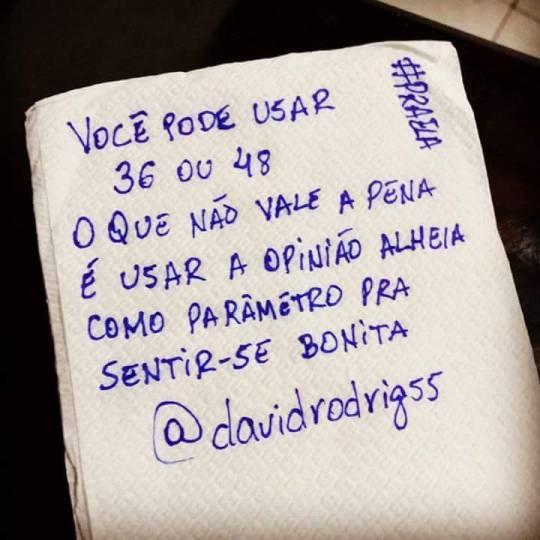 #PRAELA
VOCÊ PODE USAR
36 OU 48
O QUE NÃO VALE A PENA
É USAR A OPINIÃO ALHEIA
COMO PARÂMETRO PRA
SENTIR-SE BONITA
@davidrodrig55